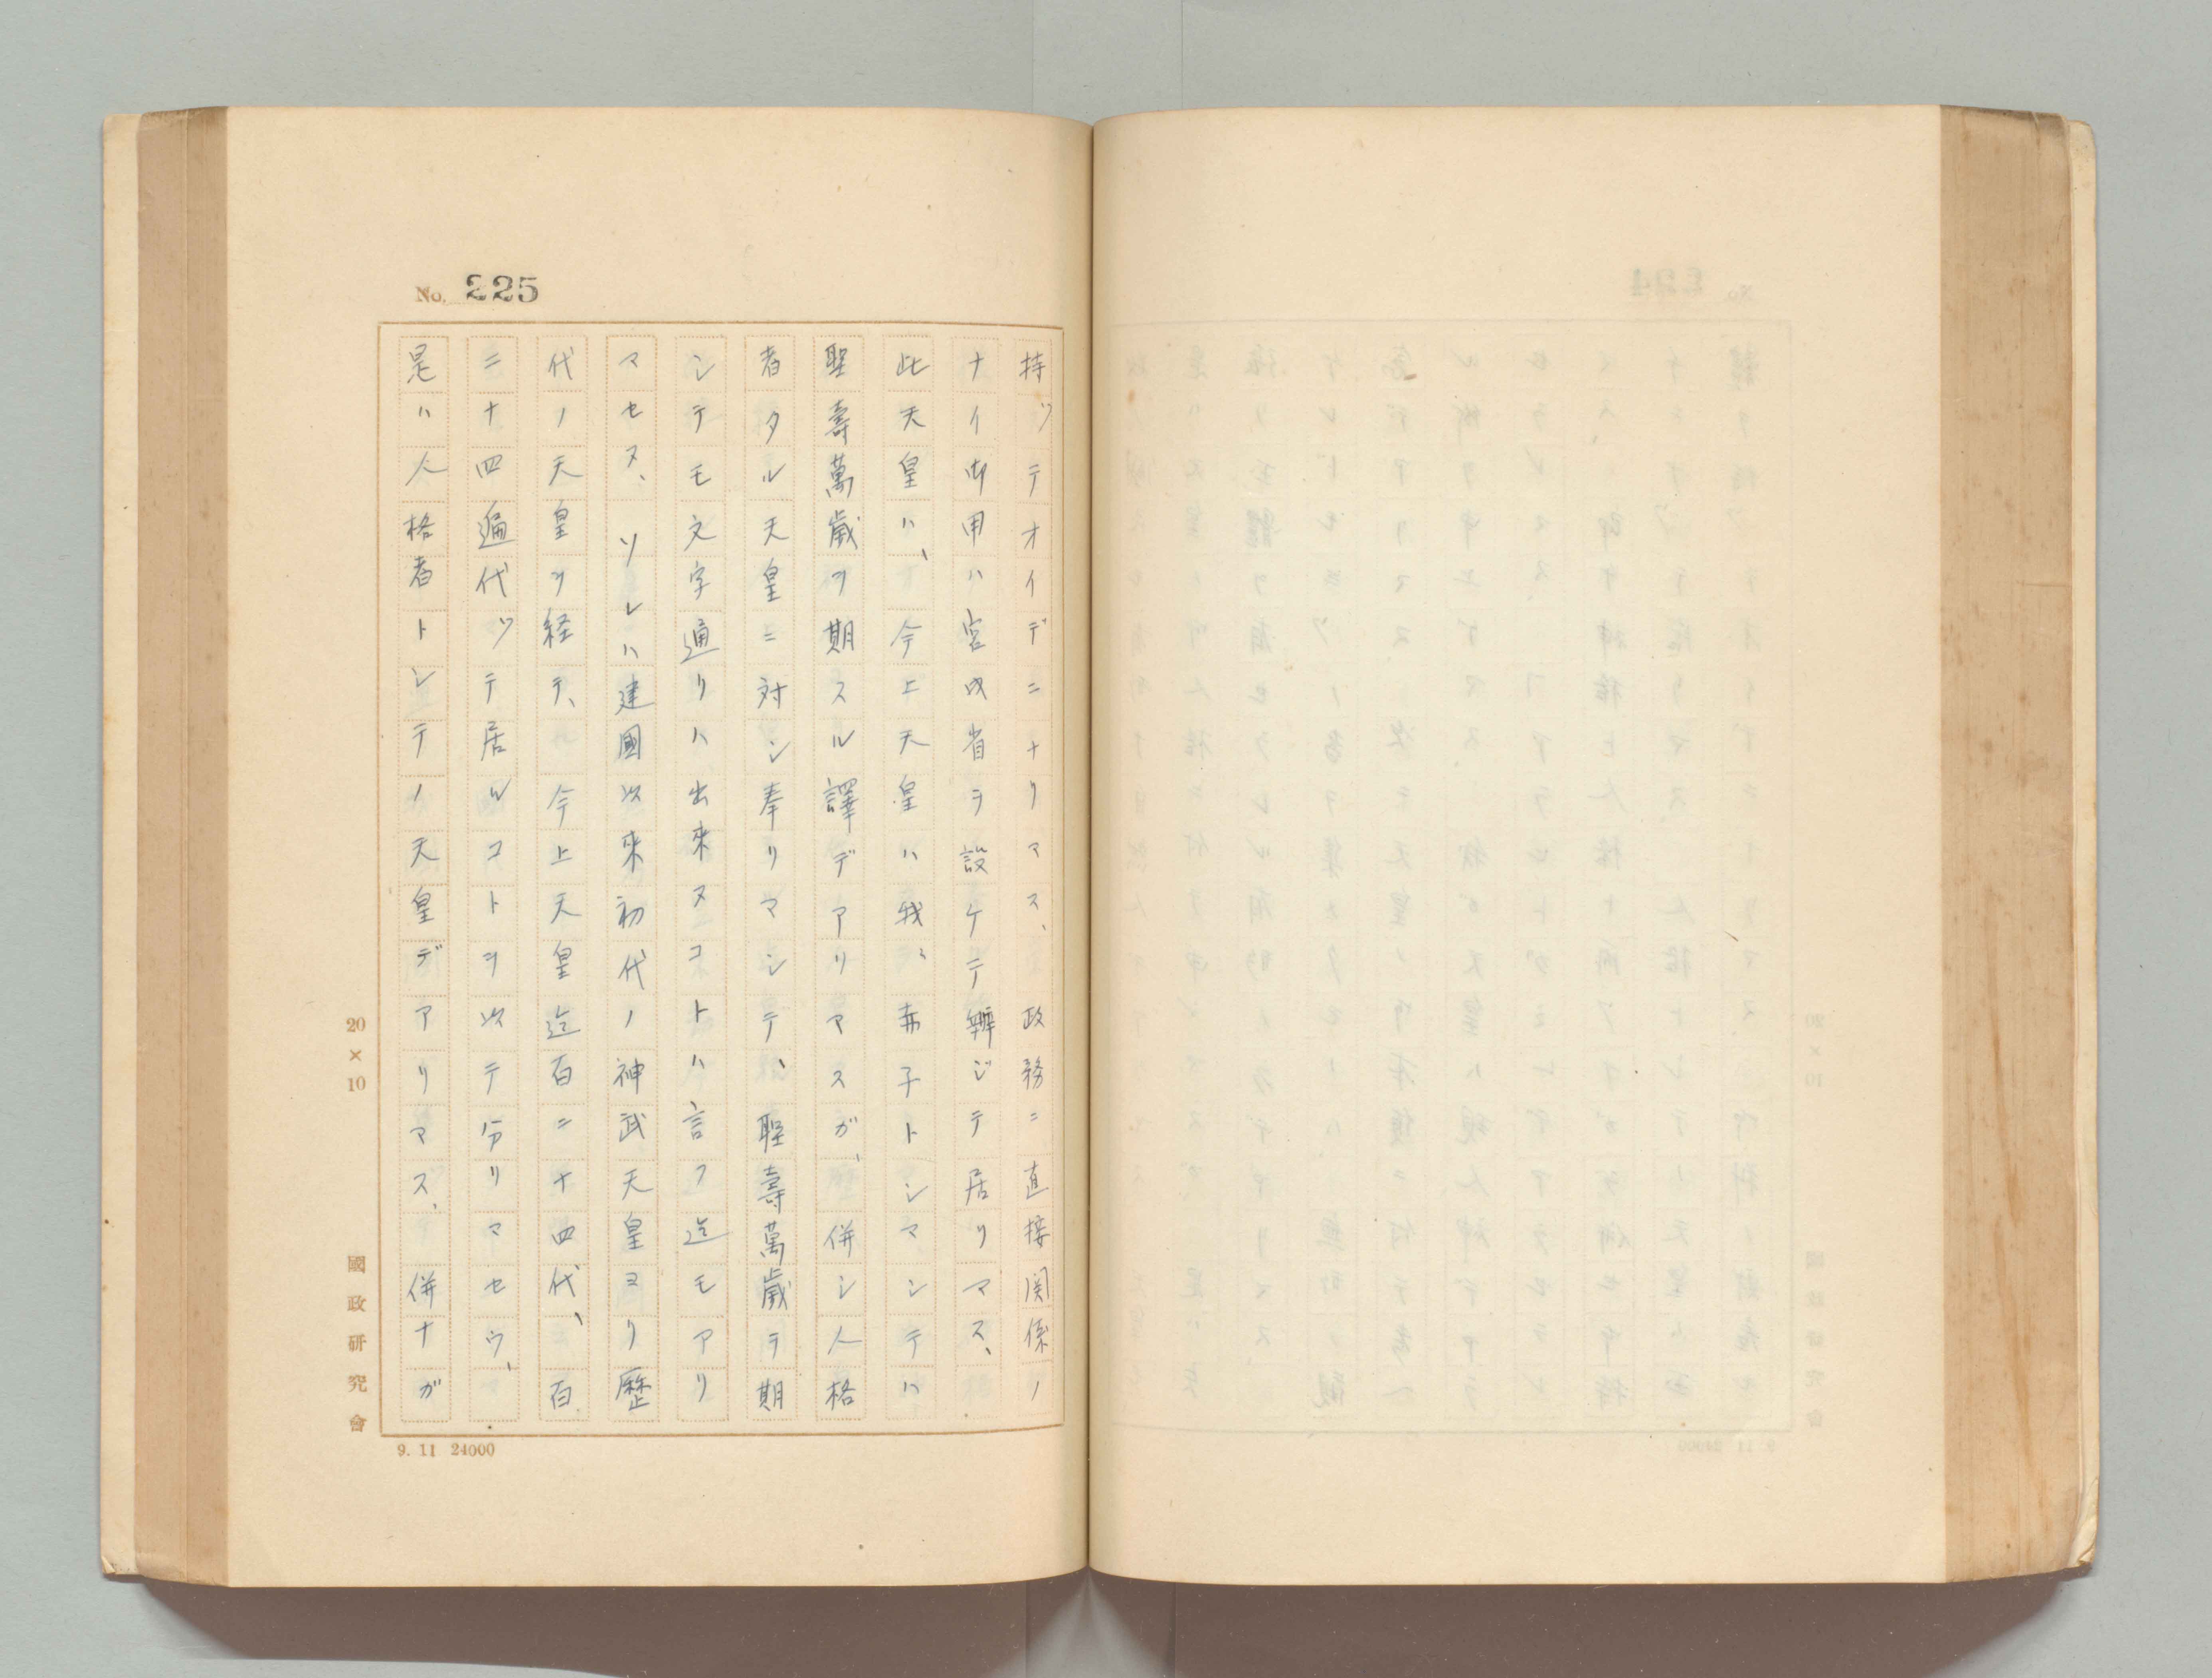 No. 225
持ツテオイデニナリマス、政務ニ直接関係ノ
ナイ御用ハ宮内省ヲ設ケテ辦ジテ居リマス、
此天皇ハ、今上天皇ハ我、赤子トシマシテハ
聖壽萬歳ヲ期スル譯デアリマスガ、併シ人格
者タル天皇ニ対シ奉リマシテ、聖壽萬歳ヲ期
シテモ文字通リハ出來ヌコトハ言フ迄モアリ
マセヌ、ソレハ建國以來初代ノ神武天皇ヨリ歴
代ノ天皇ヲ経テ、今上天皇迄百二十四代、百
二十四遍代ツテ居ルコトヲ以テ分リマセウ、
是ハ人格者トシテノ天皇デアリマス、併ナガ
20×10
國政研究會
9. 11 24000